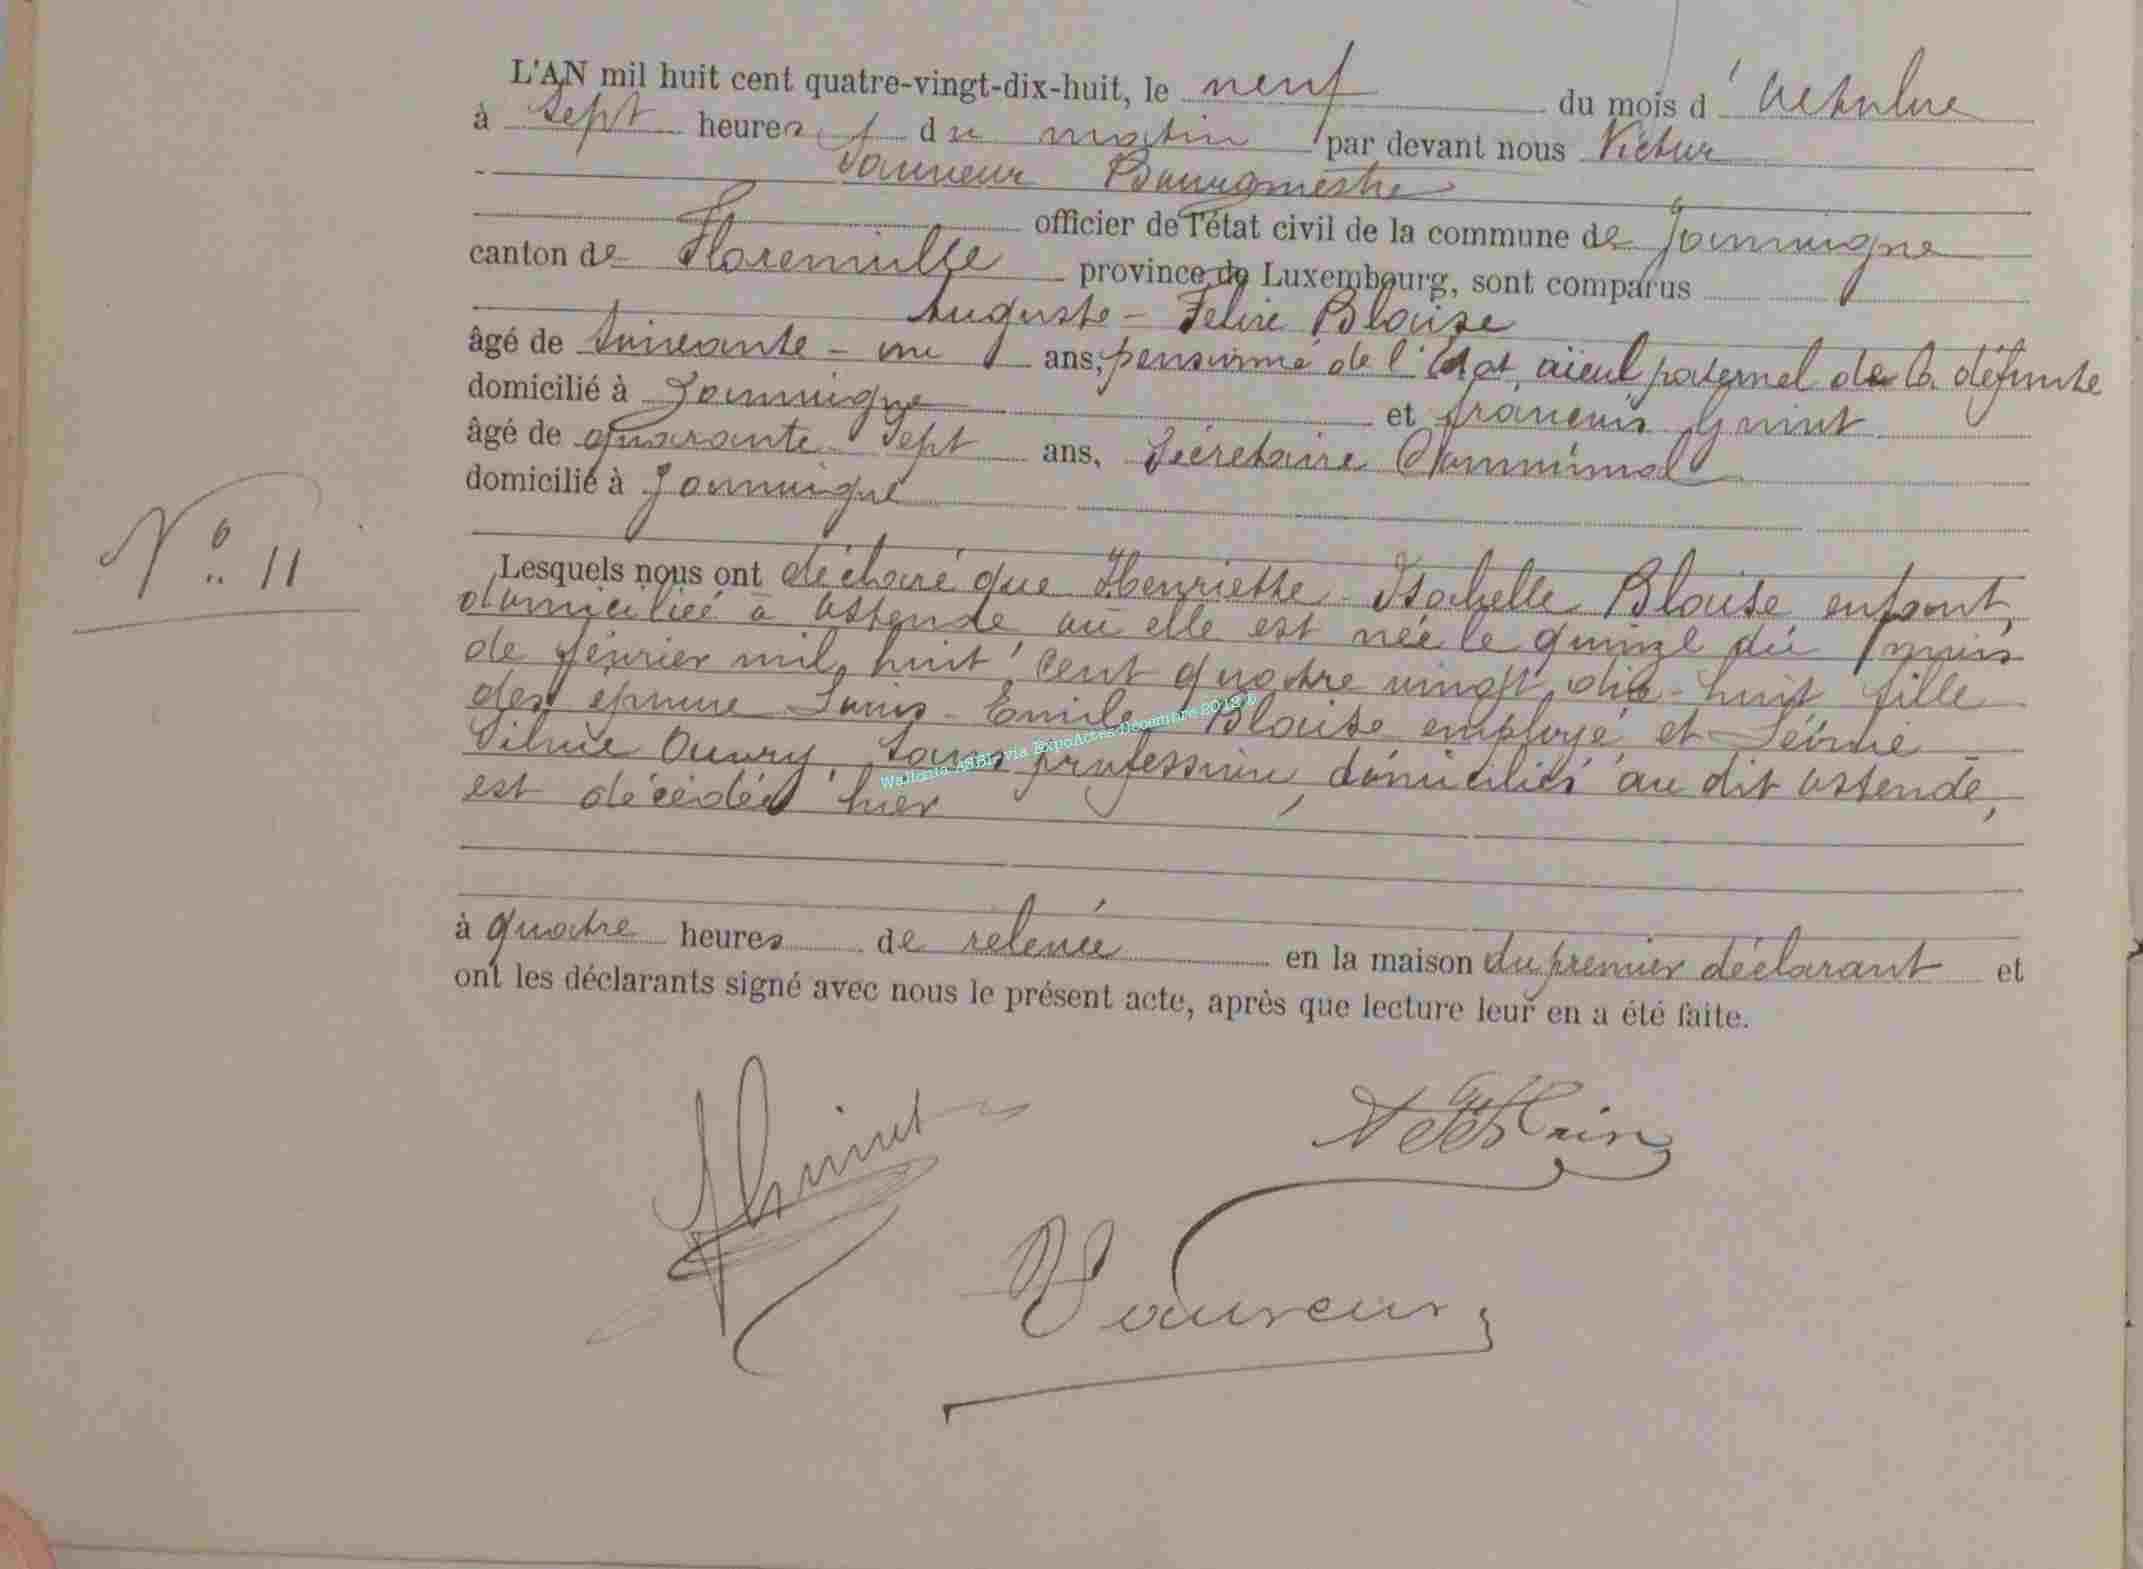 L'AN mil huit cent quatre-vingt-dix-huit, le neuf du mois d'Octobre
à sept heures du matin par devant nous Victor
Bourgmestre
officier de l'état civil de la commune de Jamoigne
canton de Florenville province de Luxembourg, sont comparus
Auguste - Félix Blaise
âgé de soixante - un ans, pensionné de l'Etat, aïeul paternel de la défunte
domicilié à Jamoigne et françois
âgé de quarante sept ans, Sécretaire Communal
domicilié à Jamoigne
N° 11
Lesquels nous ont déclaré que Henriette Isabelle Blaise enfant,
domiciliée à Ostende où elle est née le quinze du mois
de février mil huit cent quatre vingt dix-huit fille
des époux Louis - Emile Blaise employé et Léonie
Silvie Ouvry, sans profession, domiciliés au dit Ostende,
est décédée hier
Wallonia ASBL via ExpoActes Décembre 2012 ®
à quatre heures de relevée en la maison du premier déclarant et
ont les déclarants signé avec nous le présent acte, après que lecture leur en a été faite.